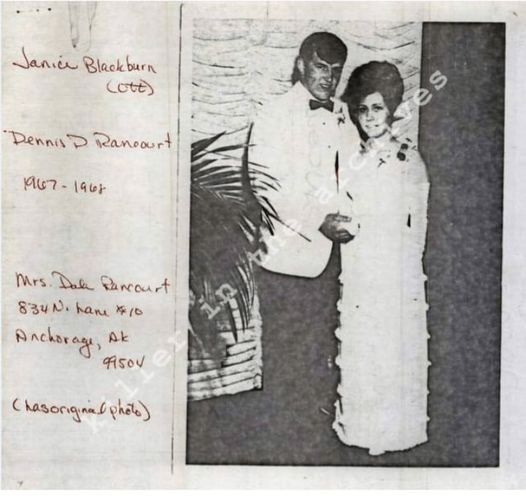 Janice Blackburn
(Ott)
Dennis D Rancourt
1967 - 1968
Mrs. Dale Rancourt
834 N. Lane #10
Anchorage, Ak
99504
(has original photo)
killer in the archives